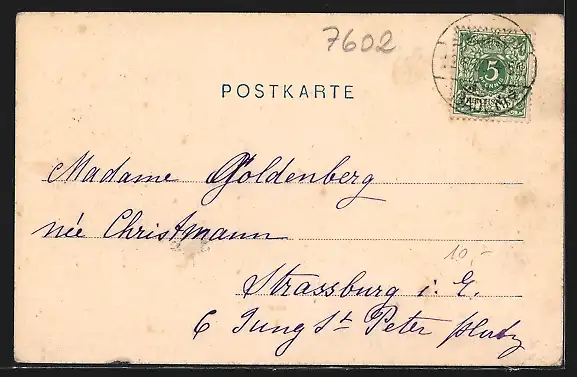 7602
POSTKARTE
5
Madame Goldenberg
née Christmann
10-
Strassburg i. E.
6 Jung St Peter platz